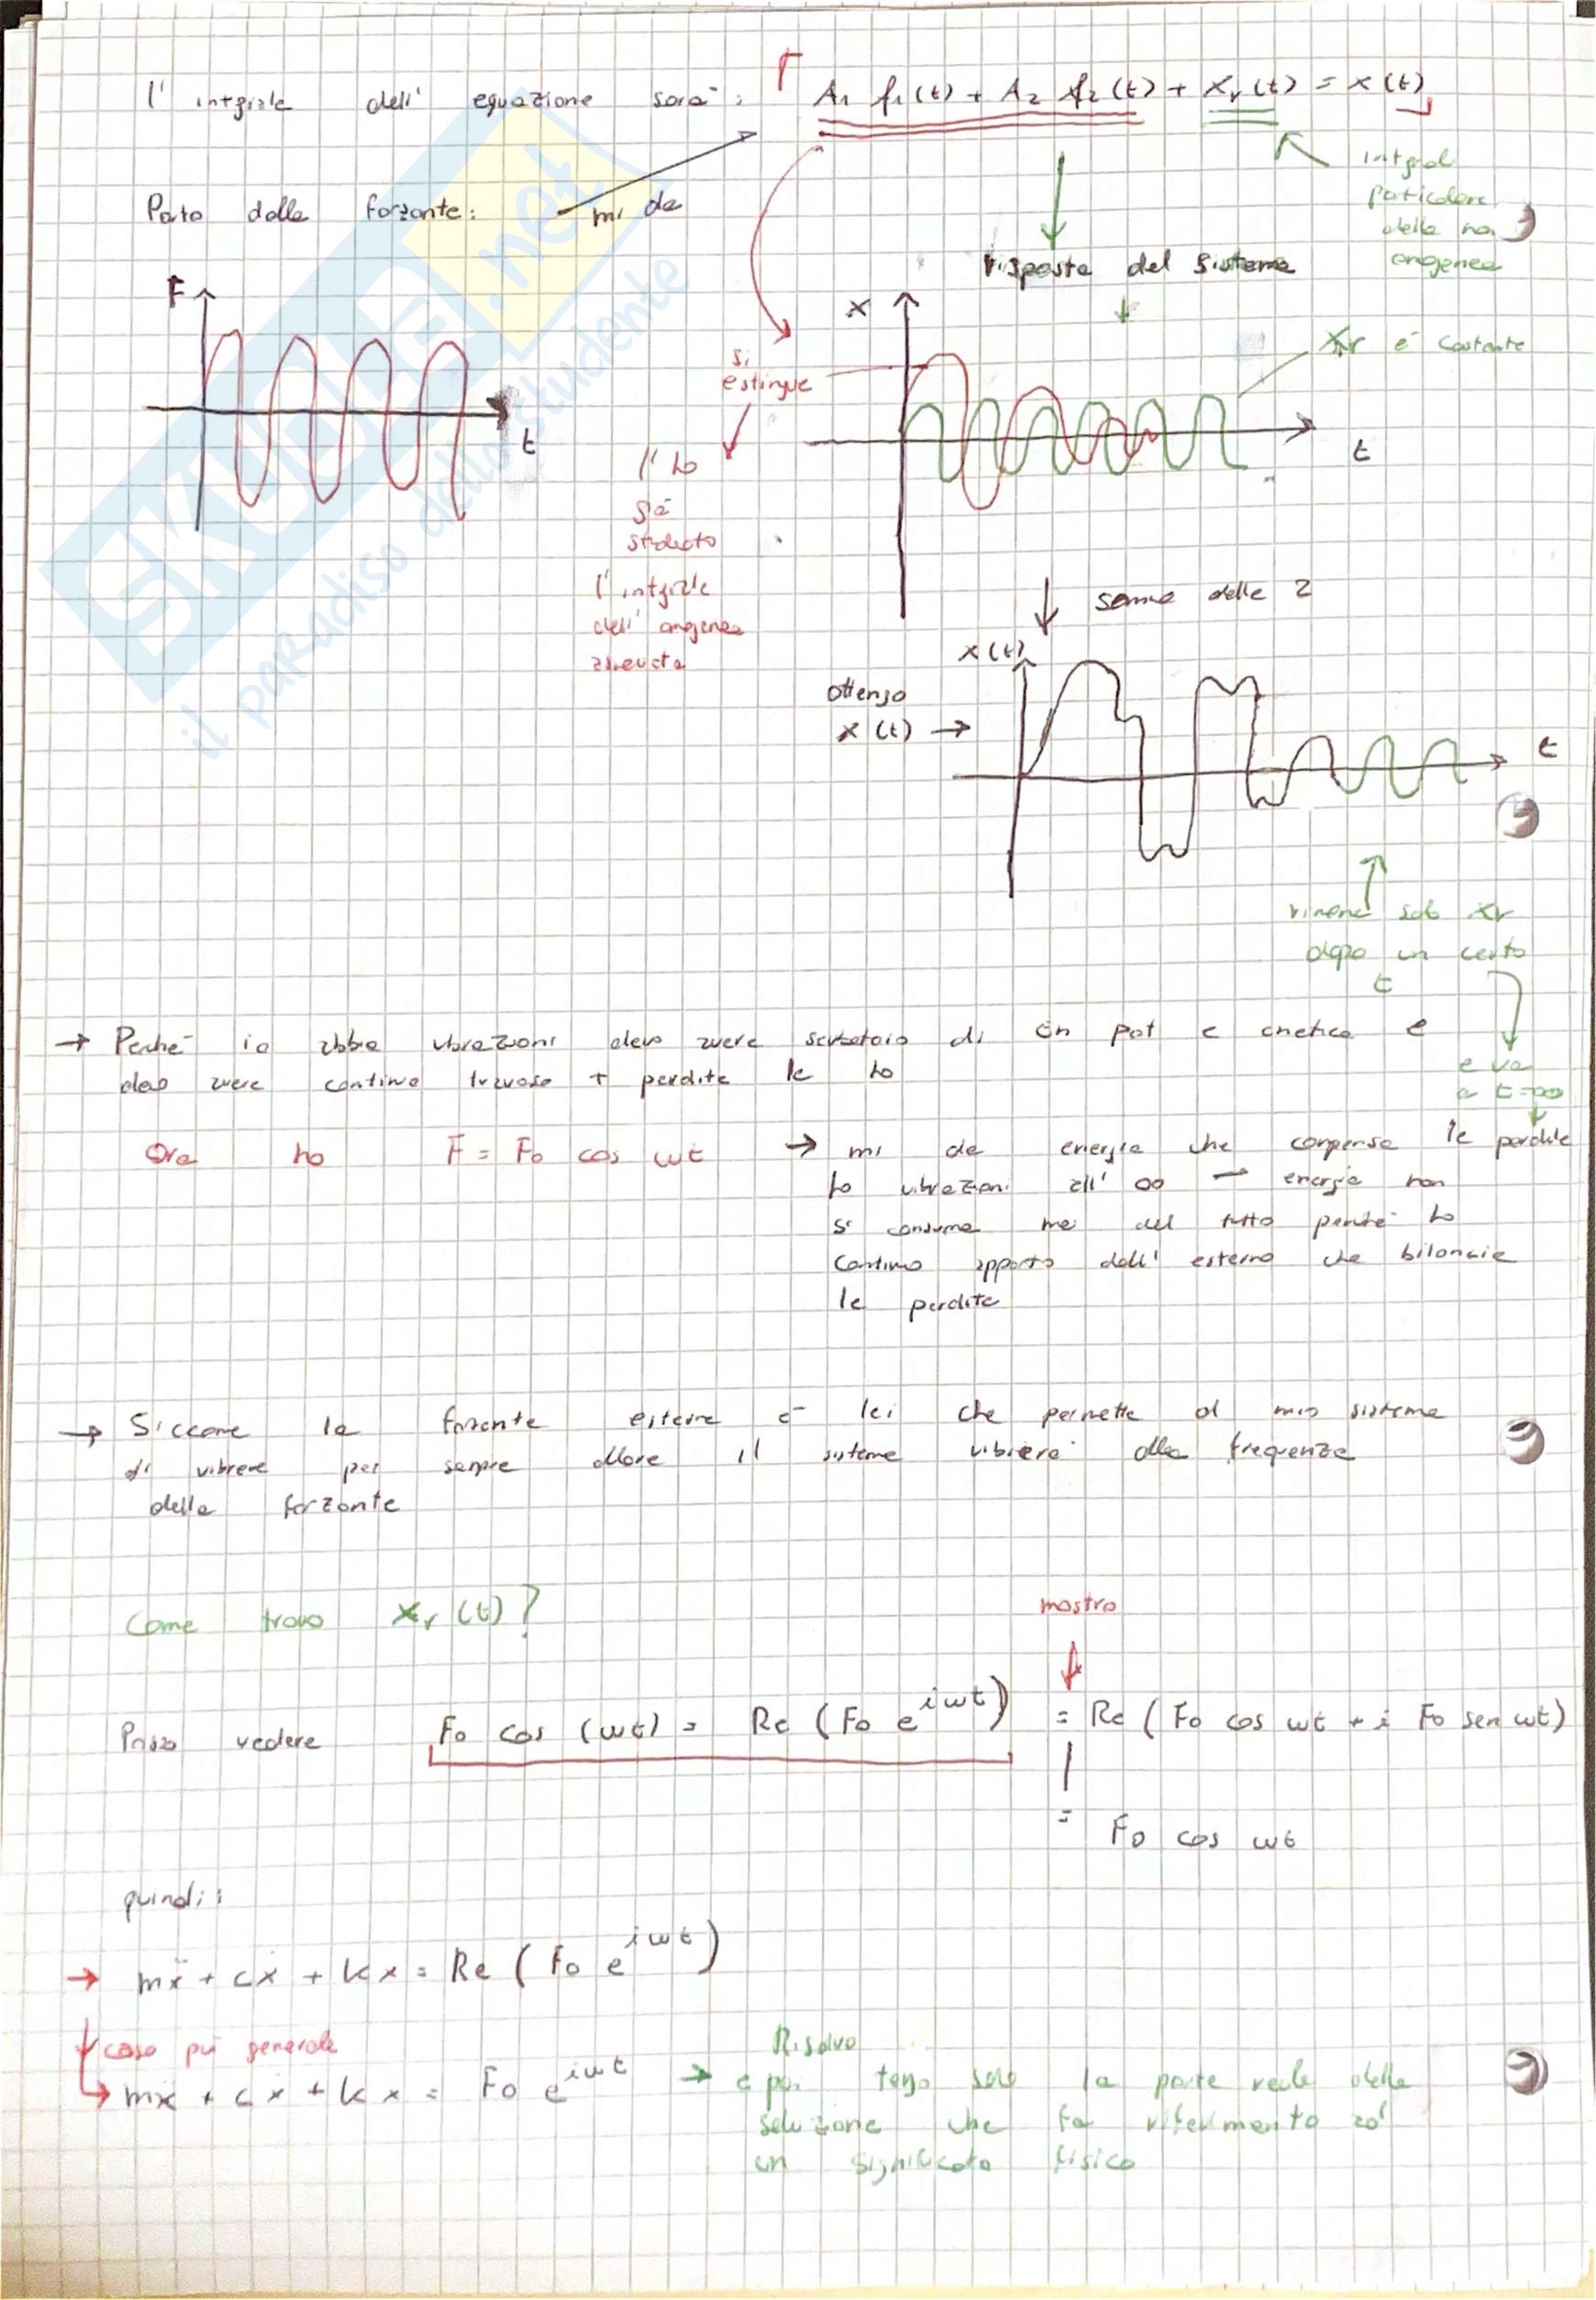 l' intgrale dell' equazione sarà: A₁ f₁(t) + A₂ f₂(t) + Xr(t) = x(t)
Parto dalla forzante: mi da
integral
particolare
della non
omogenea
risposta del sistema
F
t
x
t
Xr è costante
si
estingue
l'ho
già
studiato
l'intgrale
dell' omogenea
somma delle 2
x(t)
t
ottengo
x(t) →
rimane solo xr
dopo un certo
t
e va
a t=∞
→ Perché io abbia vibrazioni devo avere serbatoio di En pot e cinetica e
devo avere continuo travaso + perdite le ho
Ora ho F = Fo cos wt → mi da energia che compensa le perdite
ho vibrazioni all' ∞ → energia non
si consuma mai del tutto perché ho
continuo apporto dall' esterno che bilancia
le perdite
→ Siccome la forzante esterna è lei che permette al mio sistema
di vibrare per sempre allora il sistema vibrerà alla frequenza
della forzante
Come trovo Xr(t)?
mostro
Posso vedere Fo cos (wt) = Re (Fo e^iwt) = Re (Fo cos wt + i Fo sen wt)
= Fo cos wt
quindi:
→ mẍ + cẋ + kx = Re (Fo e^iwt)
caso più generale
→ mẍ + cẋ + kx = Fo e^iwt → Risolvo
e poi tengo solo la parte reale della
soluzione che fa riferimento ad
un significato fisico
SKUOLA.net
il paradiso dello studente